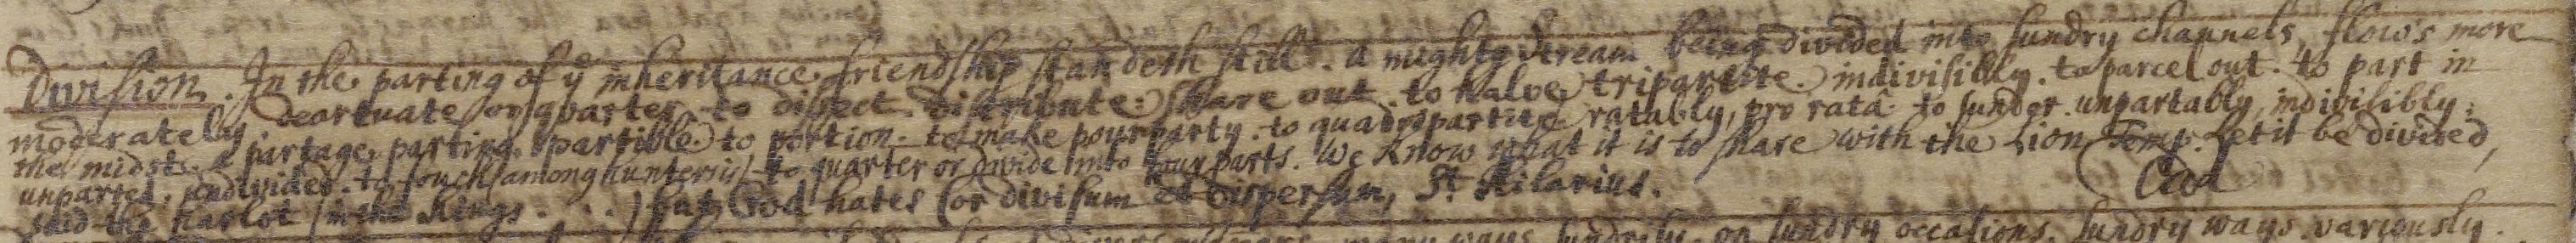 Division. In the parting of yͤ inheritance, friendship standeth still. a mighty stream being divided into sundry channels, flows more
moderately. deartuate or quarter. to dissect. distribute. share out. to halve, tripartite. indivisibly. to parcel out. to part in
the midst. partage, parting, partible. to portion. to make pourparty. to quadripartite. ratably, pro ratâ. to sunder. unpartably, indivisibly.
unparted. undivided. to (among hunters is) to quarter or divide into four parts. We know what it is to share with the Lion. Temp. Let it be divided,
said the harlot (in the Kings . . . ) but God hates cor divisum et dispersum, St. Hilarius.
many ways, sundrily. on sundry occasions. sundry ways. variously.